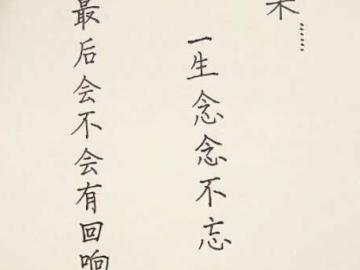 果……
一生念念不忘
最后会不会有回响